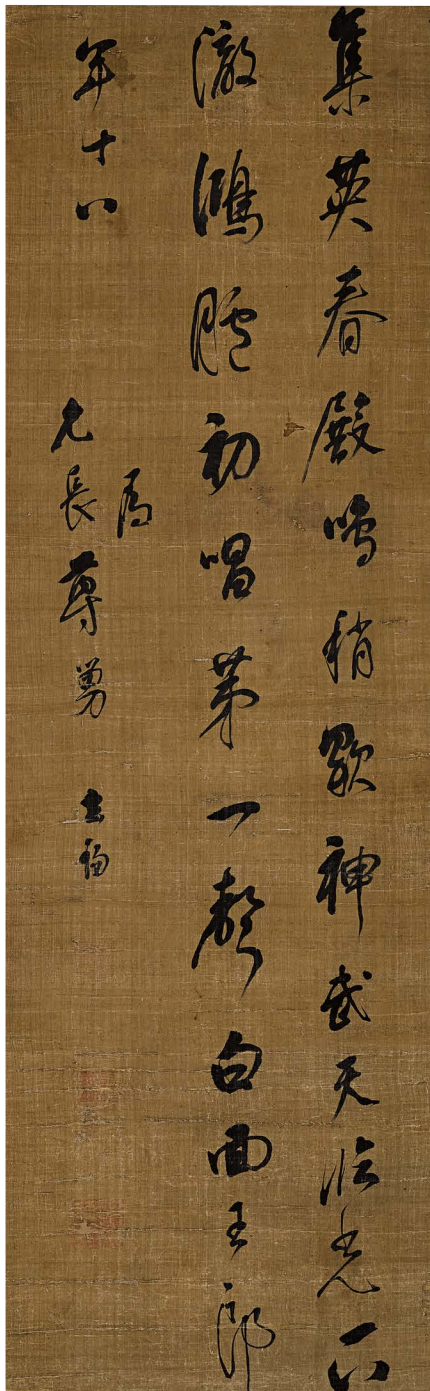 集英春殿鳴稍歇神武天臨光下
澈鴻臚初唱第一聲白面王郎
年十八
為
長尊舅